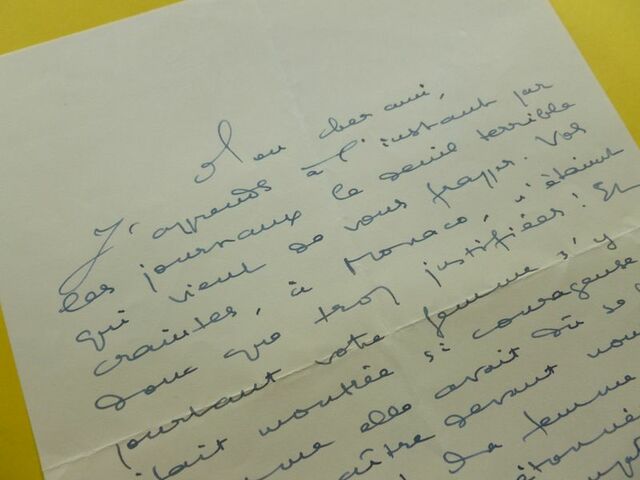 Mon cher ami,
J'apprends à l'instant par
les journaux le deuil terrible
qui vient de vous frapper. Vos
craintes, à Monaco, n'étaient
donc que trop justifiées! Et
pourtant votre femme s'y
était montrée si courageuse
comme elle avait dû se
aître devant nou
la femme
étonné